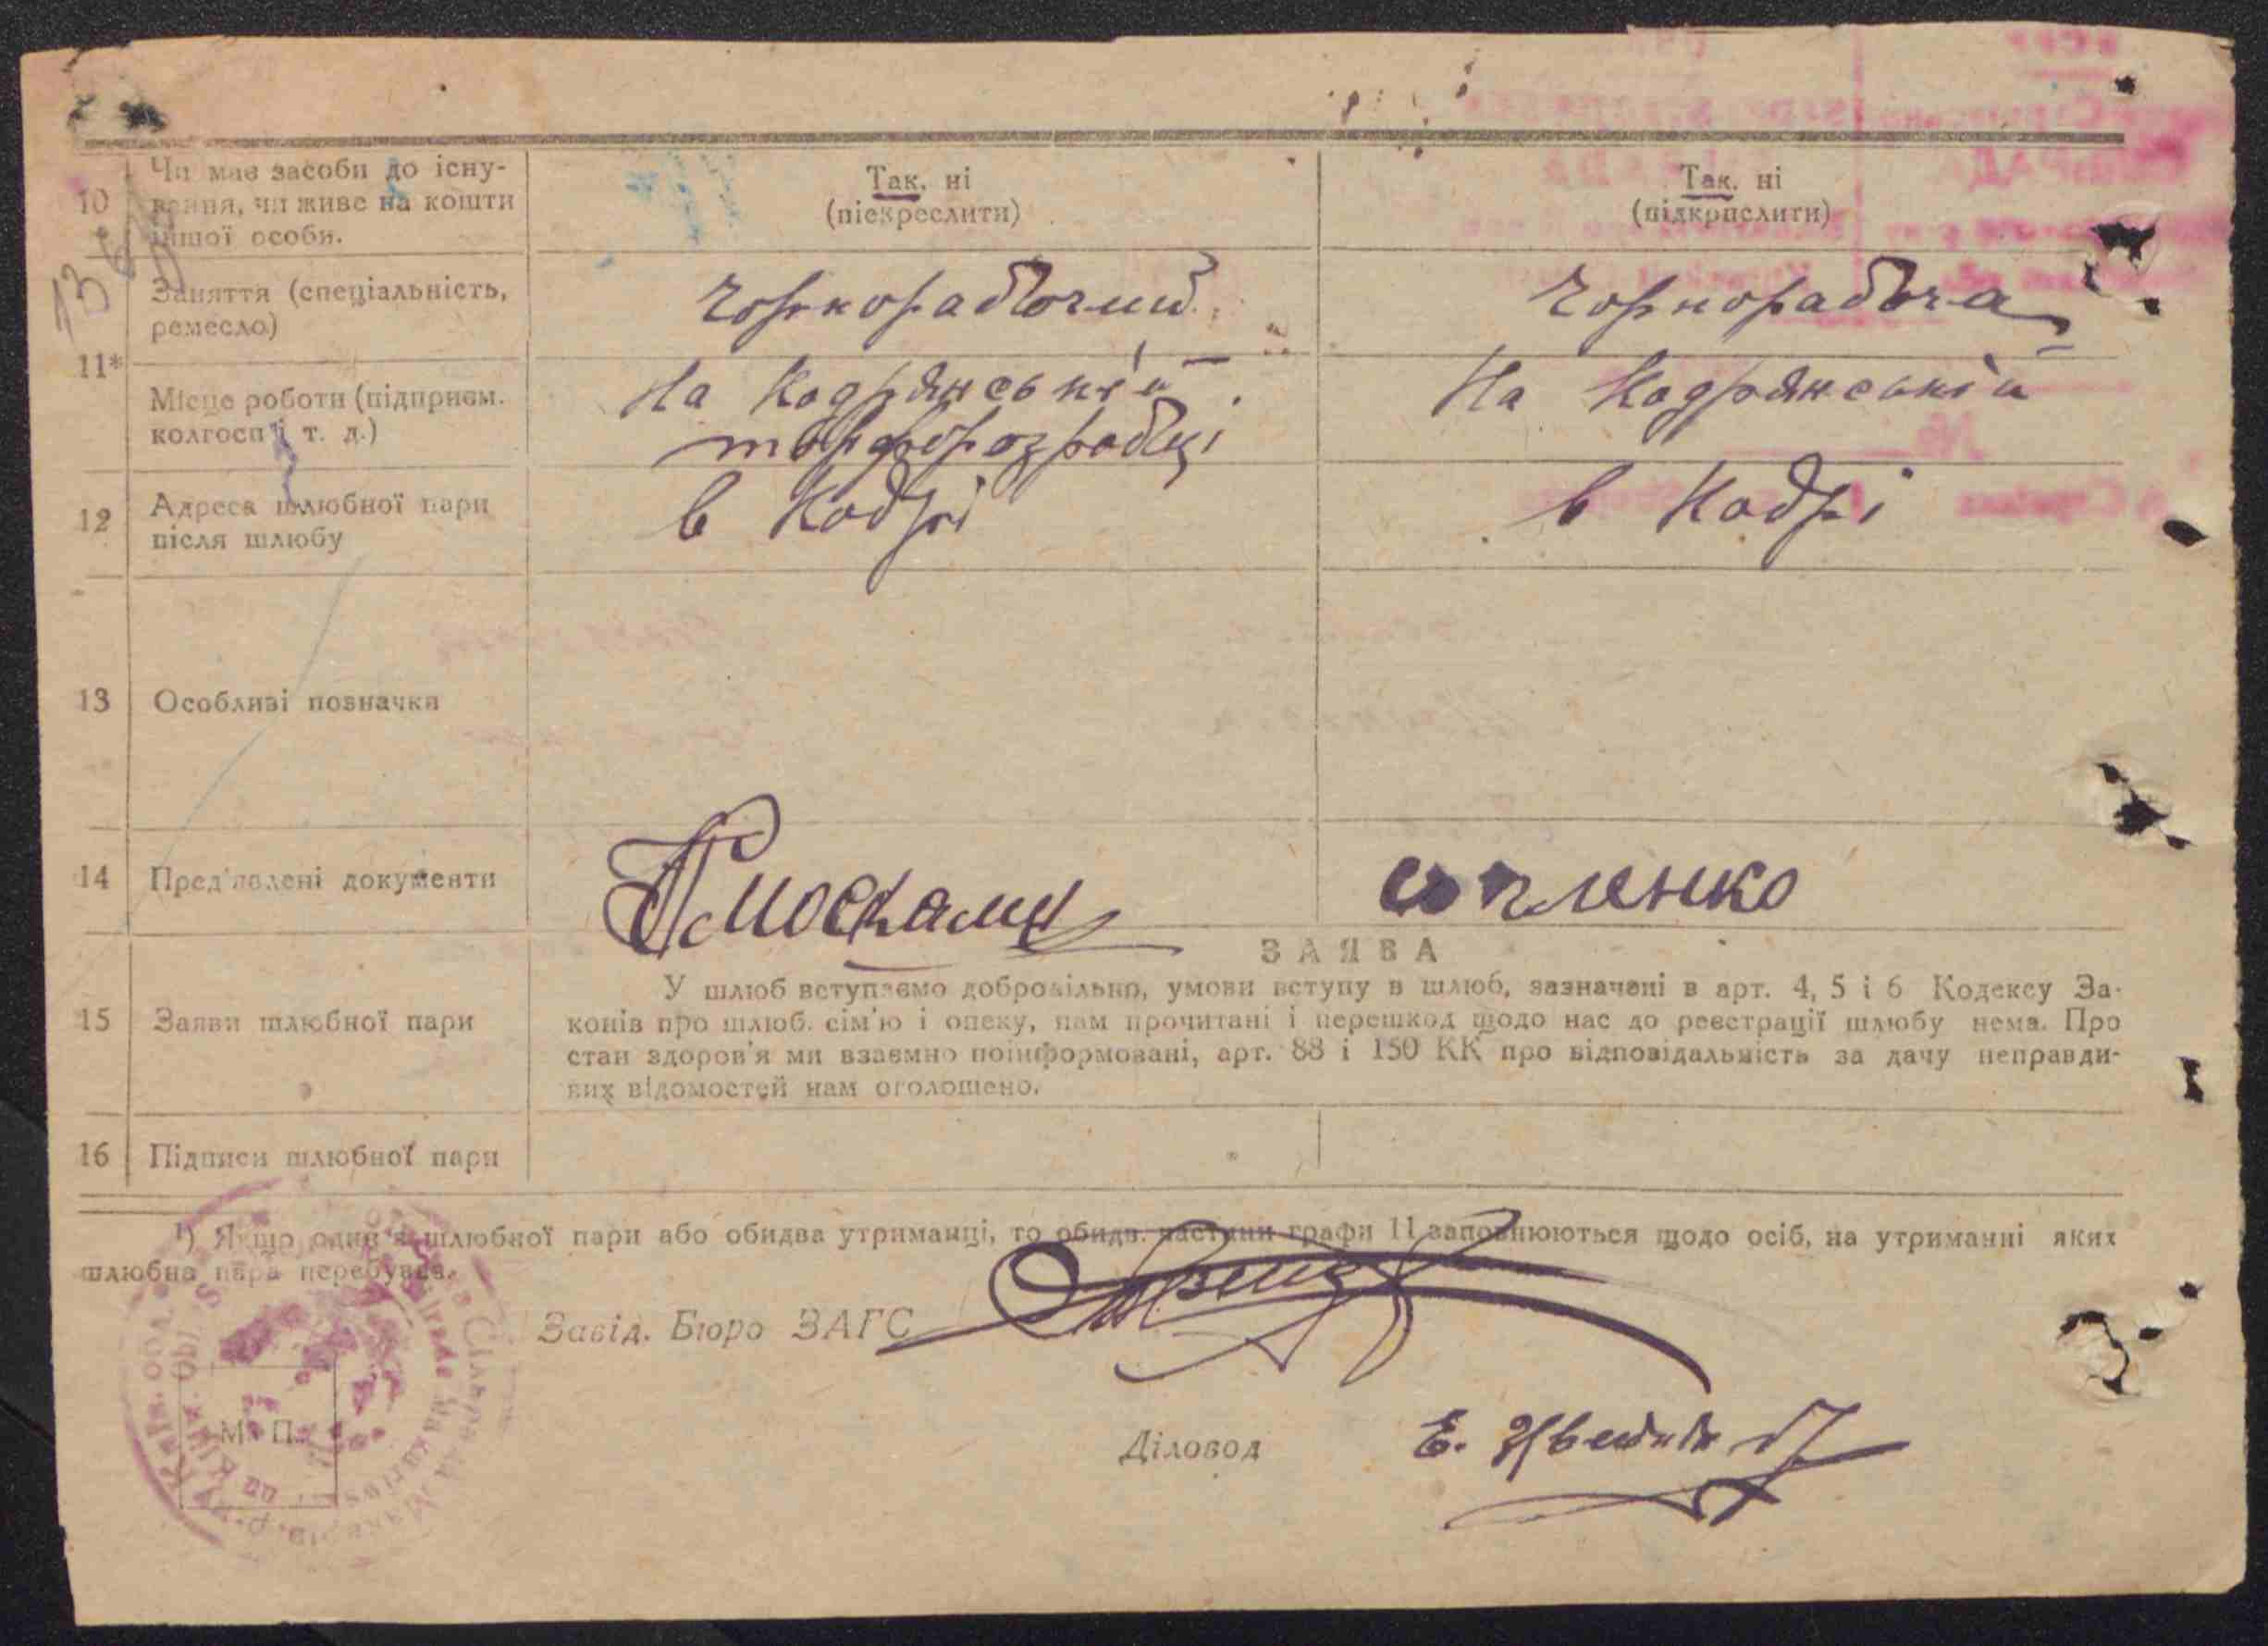 10
Чи має засоби до існу-
вання, чи живе на кошти
іншої особи.
Так, ні
(піекреслити)
Так, ні
(підкрпслити)
Заняття (спеціальність,
ремесло)
Чорнорабочий
Чорнорабоча
11*
Місце роботи (підприєм.
колгосп і т. д.)
На Кодрянській
торфорозробці
На Кодрянській
12
Адреса шлюбної пари
після шлюбу
в Кодрі
в Кодрі
13
Особливі позначки
14
Пред'явлені документи
ЗАЯВА
15
Заяви шлюбної пари
У шлюб вступаємо добровільно, умови вступу в шлюб, зазначені в арт. 4, 5 і 6 Кодексу За-
конів про шлюб, сім'ю і опеку, нам прочитані і перешкод щодо нас до реєстрації шлюбу нема. Про
стан здоров'я ми взаємно поінформовані, арт. 88 і 150 КК про відповідальність за дачу неправди-
вих відомостей нам оголошено.
16
Підписи шлюбної пари
¹) Якщо один з шлюбної пари або обидва утриманці, то обидв. частини графи 11 заповнюються щодо осіб, на утриманні яких
шлюбна пара перебуває.
Завід. Бюро ЗАГС
М. П.
Діловод
Е.